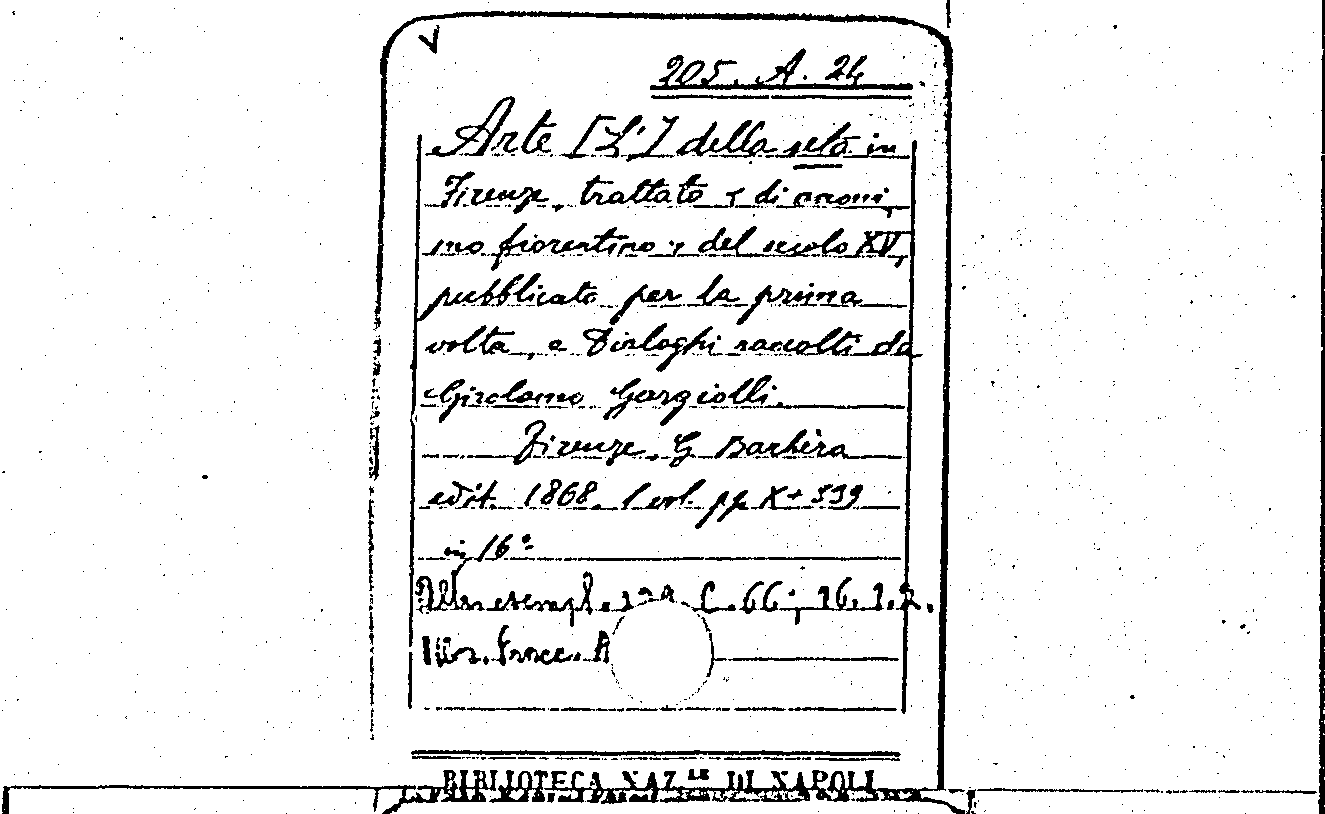 205. A. 24
Arte [L'] della seta in
Firenze, trattato di anoni,
mo fiorentino, del secolo XV,
pubblicato per la prima
volta, e Dialoghi raccolti da
Girolamo Gargiolli.
Firenze. G Barbèra
edit. 1868. 1 vol. pp X+339
in 16º
Altro esempl. C. 66; 16. 1. 2.
A
BIBLIOTECA NAZ.LE DI NAPOLI